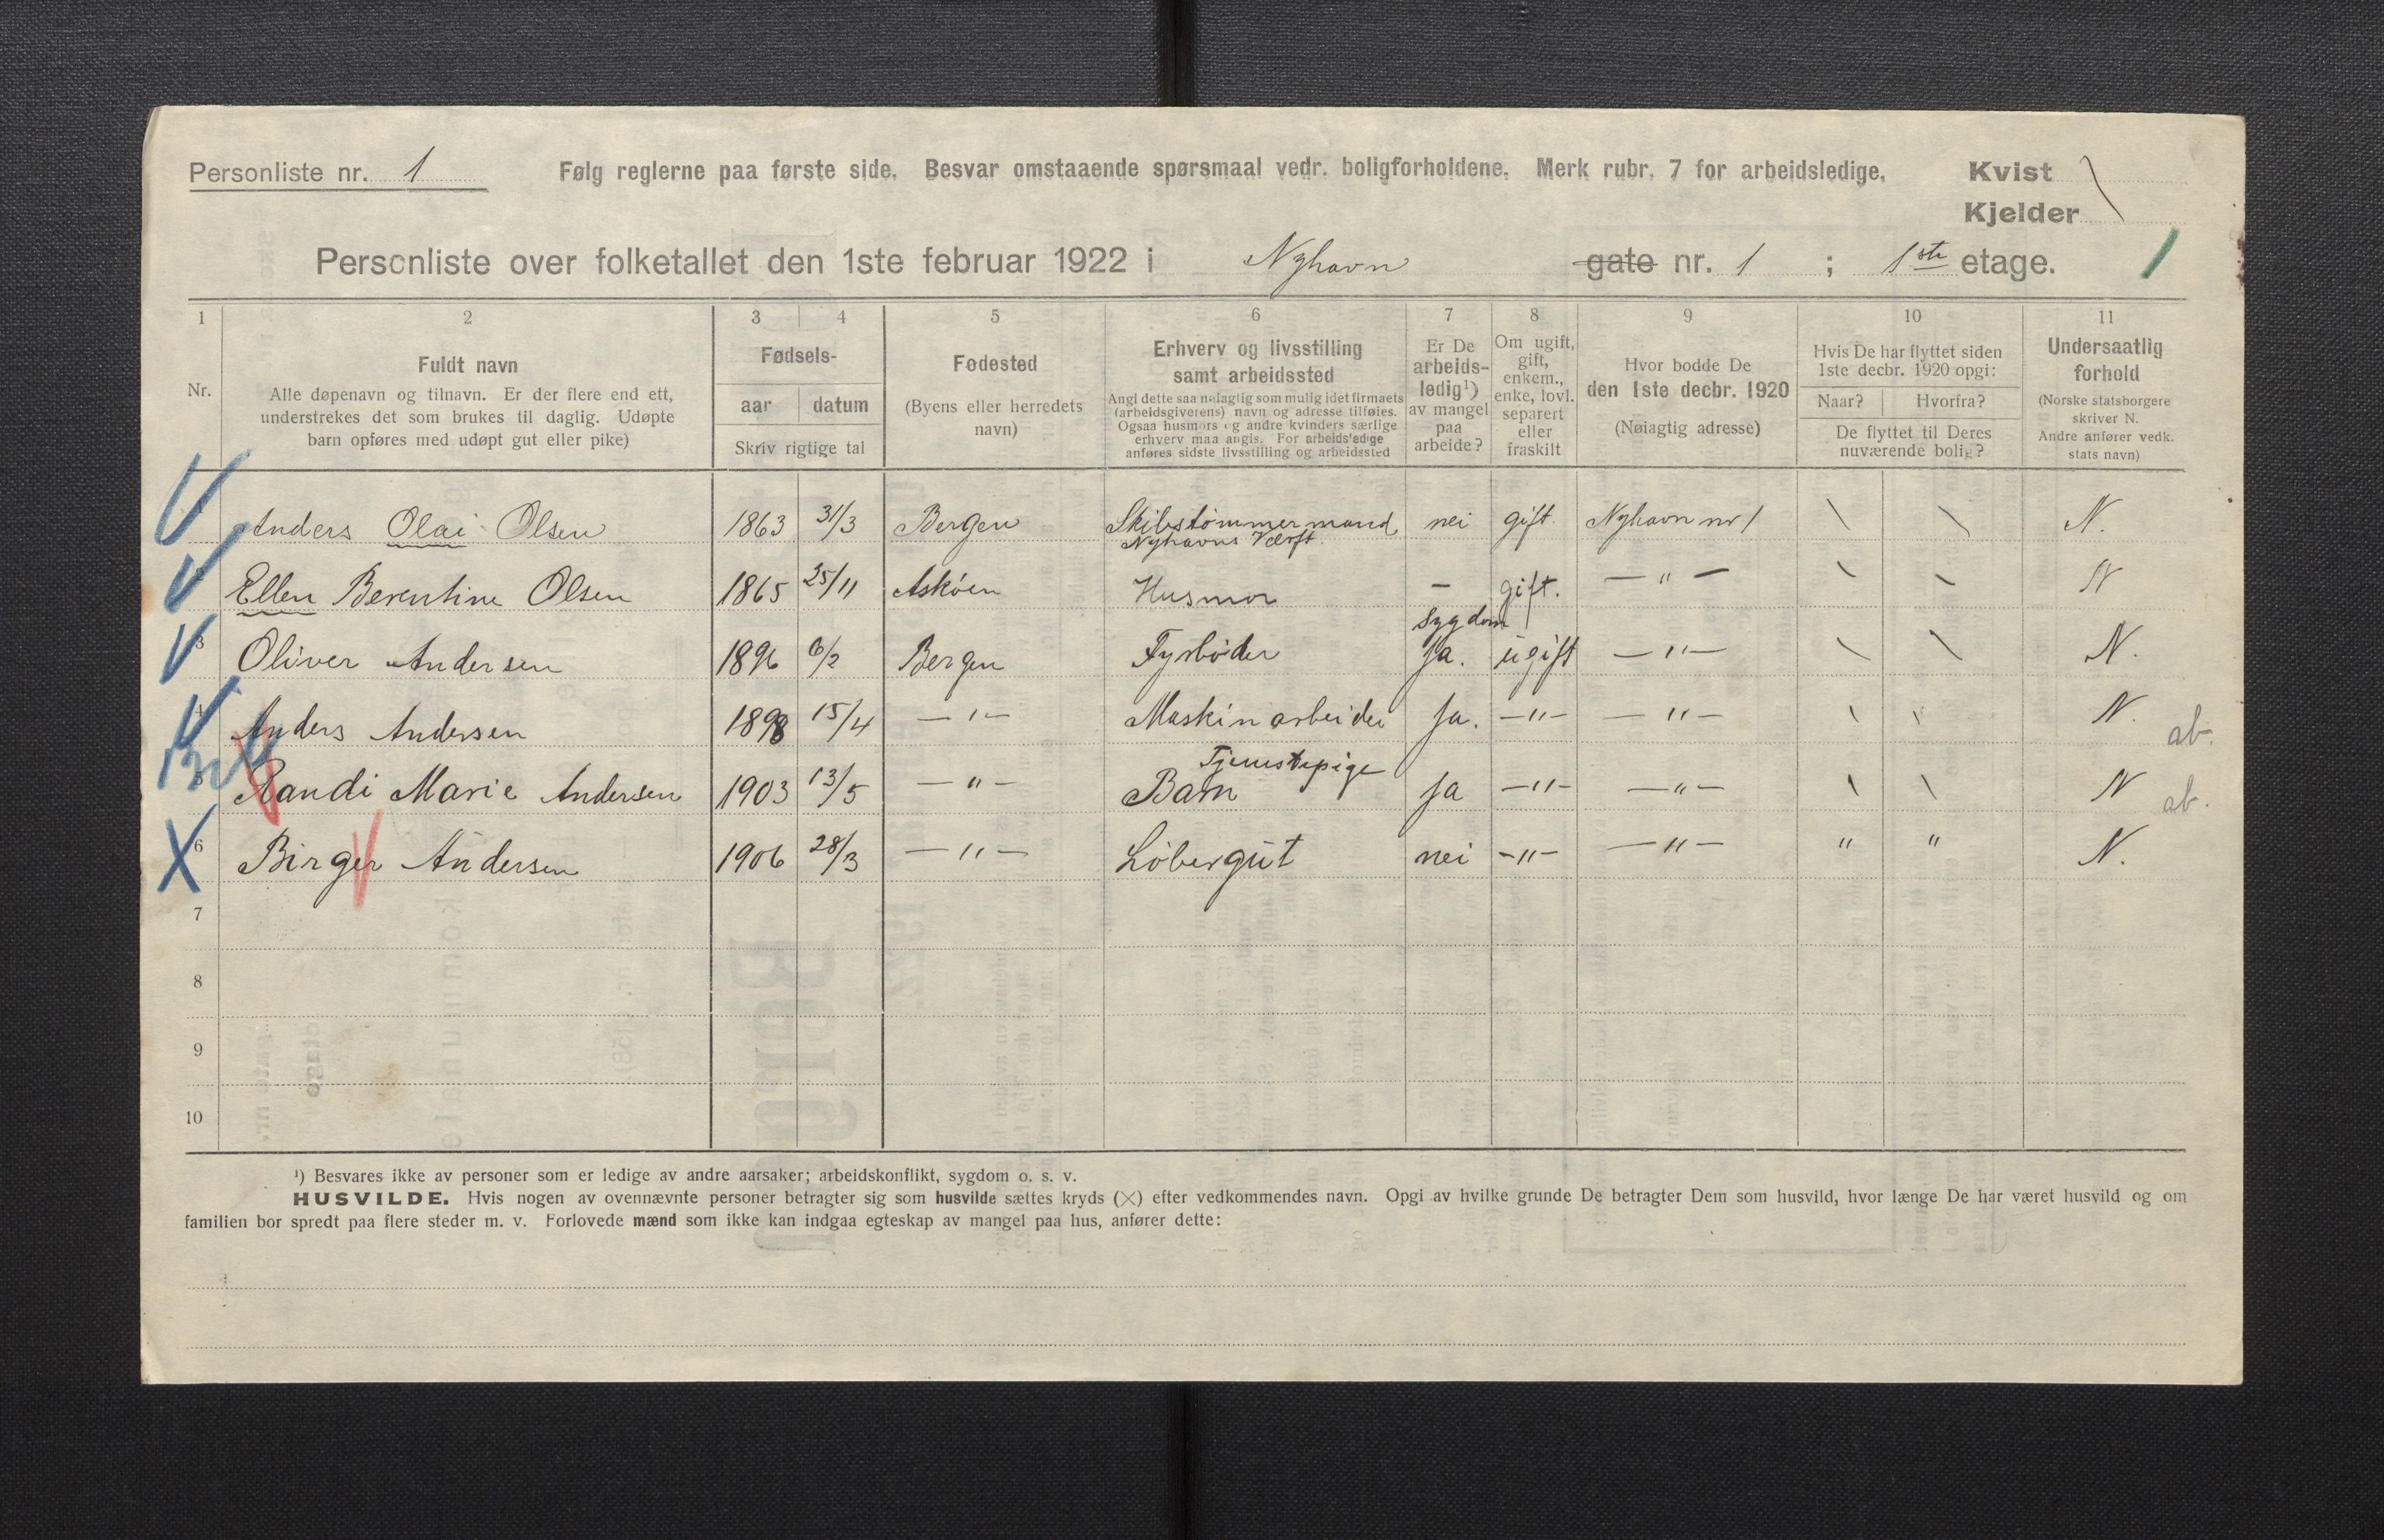 Personliste nr. 1 Følg reglerne paa første side. Besvar omstaaende spørsmaal vedr. boligforholdene. Merk rubr. 7 for arbeidsledige. Kvist
Kjelder
Personliste over folketallet den 1ste februar 1922 i Nyhavn gate nr. 1 ; 1ste etage. 1
1 2 3 4 5 6 7 8 9 10 11
Nr.
Fuldt navn
Alle døpenavn og tilnavn. Er der flere end ett,
understrekes det som brukes til daglig. Udøpte
barn opføres med udøpt gut eller pike)
Fødsels-
aar datum
Skriv rigtige tal
Fødested
(Byens eller herredets
navn)
Erhverv og livsstilling
samt arbeidssted
Angi dette saa nøiagtig som mulig idet firmaets
(arbeidsgiverens) navn og adresse tilføies.
Ogsaa husmors og andre kvinders særlige
erhverv maa angis. For arbeidsledige
anføres sidste livsstilling og arbeidssted
Er De
arbeids-
ledig¹)
av mangel
paa
arbeide?
Om ugift,
gift,
enkem.,
enke, lovl.
separert
eller
fraskilt
Hvor bodde De
den 1ste decbr. 1920
(Nøiagtig adresse)
Hvis De har flyttet siden
1ste decbr. 1920 opgi:
Naar? Hvorfra?
De flyttet til Deres
nuværende bolig?
Undersaatlig
forhold
(Norske statsborgere
skriver N.
Andre anfører vedk.
stats navn)
Anders Olai Olsen 1863 31/3 Bergen Skibstømmermand nei gift. Nyhavn nr 1 \ \ N.
Nyhavns Værft.
Ellen Berentine Olsen 1865 25/11 Askøen Husmor — gift. — " — \ \ N
sygdom
3 Oliver Andersen 1896 6/2 Bergen Fyrbøder Ja. ugift — " — \ \ N.
4 Anders Andersen 1898 15/4 — " — Maskinarbeider Ja. — " — — " — \ \ N. ab.
Tjenestepige
5 Randi Marie Andersen 1903 13/5 — " — Barn Ja — " — — " — \ \ N ab.
6 Birger Andersen 1906 28/3 — " — Løbergut nei — " — — " — " " N.
7
8
9
10
¹) Besvares ikke av personer som er ledige av andre aarsaker; arbeidskonflikt, sygdom o. s. v.
HUSVILDE. Hvis nogen av ovennævnte personer betragter sig som husvilde sættes kryds (×) efter vedkommendes navn. Opgi av hvilke grunde De betragter Dem som husvild, hvor længe De har været husvild og om
familien bor spredt paa flere steder m. v. Forlovede mænd som ikke kan indgaa egteskap av mangel paa hus, anfører dette: